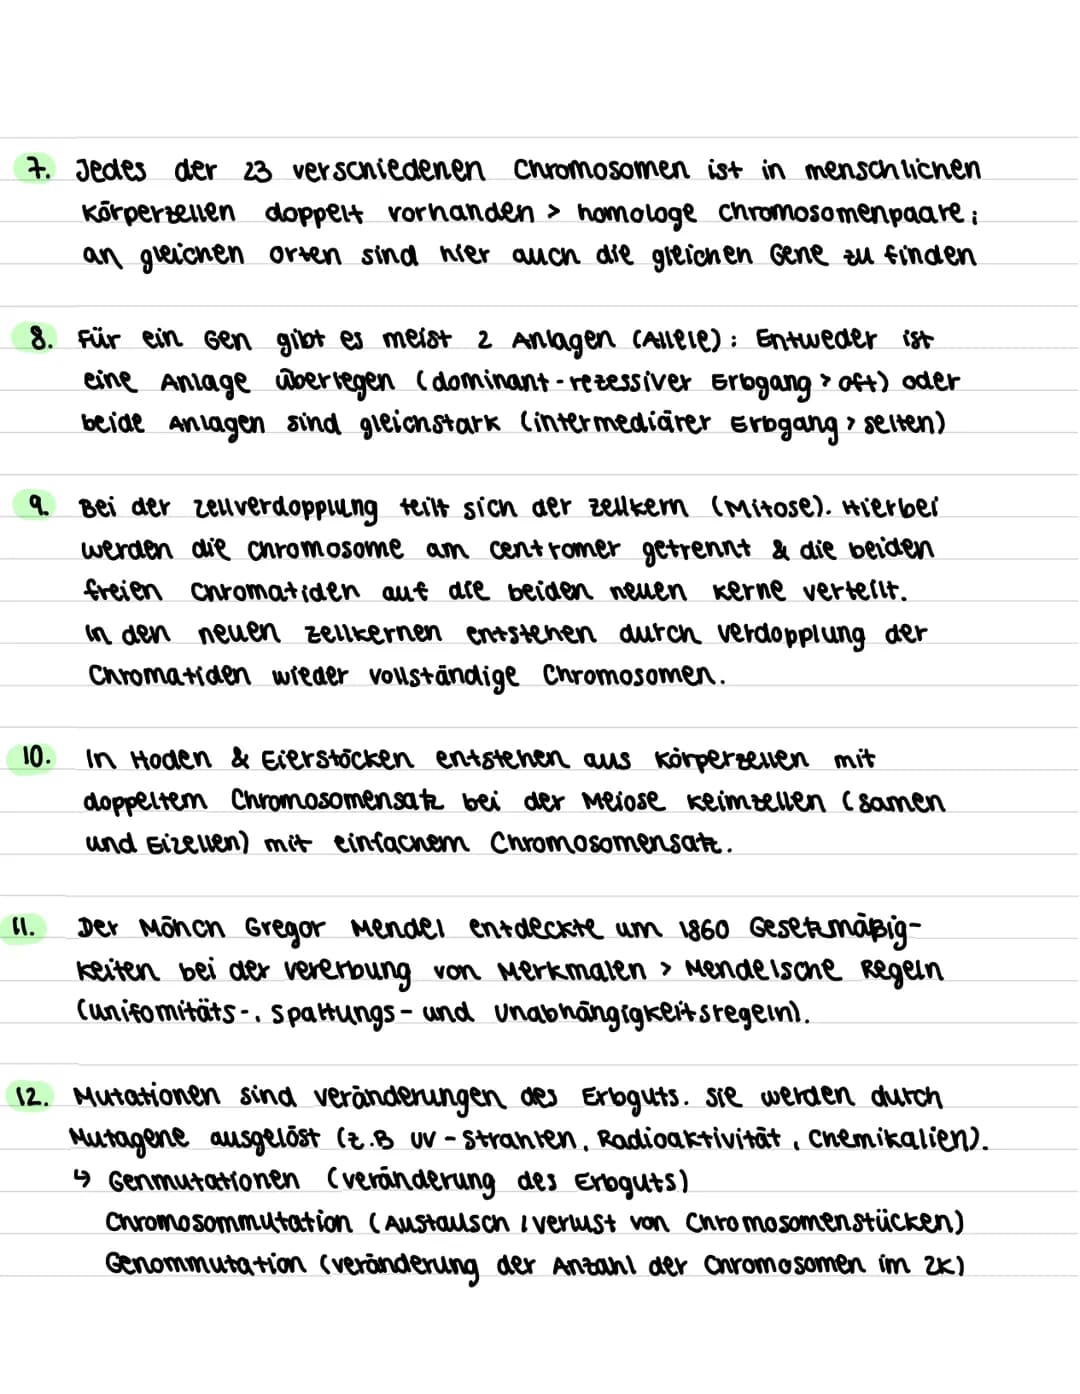 7. Jedes der 23 verschiedenen Chromosomen ist in menschlichen
Körperzellen doppelt vorhanden > homologe Chromosomenpaare;
an gleichen Orten sind hier auch die gleichen Gene zu finden
8. Für ein Gen gibt es meist 2 Anlagen (Allele): Entweder ist
eine Anlage überlegen (dominant-rezessiver Erbgang > oft) oder
beide Anlagen sind gleichstark (intermediärer Erbgang > selten)
9. Bei der Zellverdopplung teilt sich der Zellkern (Mitose). Hierbei
werden die Chromosome am Centromer getrennt & die beiden
freien Chromatiden auf die beiden neuen Kerne verteilt.
In den neuen Zellkernen entstehen durch Verdopplung der
Chromatiden wieder vollständige Chromosomen.
10. In Hoden & Eierstöcken entstehen aus Körperzellen mit
doppeltem Chromosomensatz bei der Meiose Keimzellen (Samen
und Eizellen) mit einfachem Chromosomensatz.
11. Der Mönch Gregor Mendel entdeckte um 1860 Gesetzmäßig-
keiten bei der Vererbung von Merkmalen > Mendelsche Regeln
(Unifomitäts-, Spaltungs- und Unabhängigkeitsregeln).
12. Mutationen sind Veränderungen des Erbguts. Sie werden durch
Mutagene ausgelöst (z.B UV-Strahlen, Radioaktivität, Chemikalien).
↳ Genmutationen (Veränderung des Erbguts)
Chromosommutation (Austausch / Verlust von Chromosomenstücken)
Genommutation (Veränderung der Anzahl der Chromosomen im ZK)